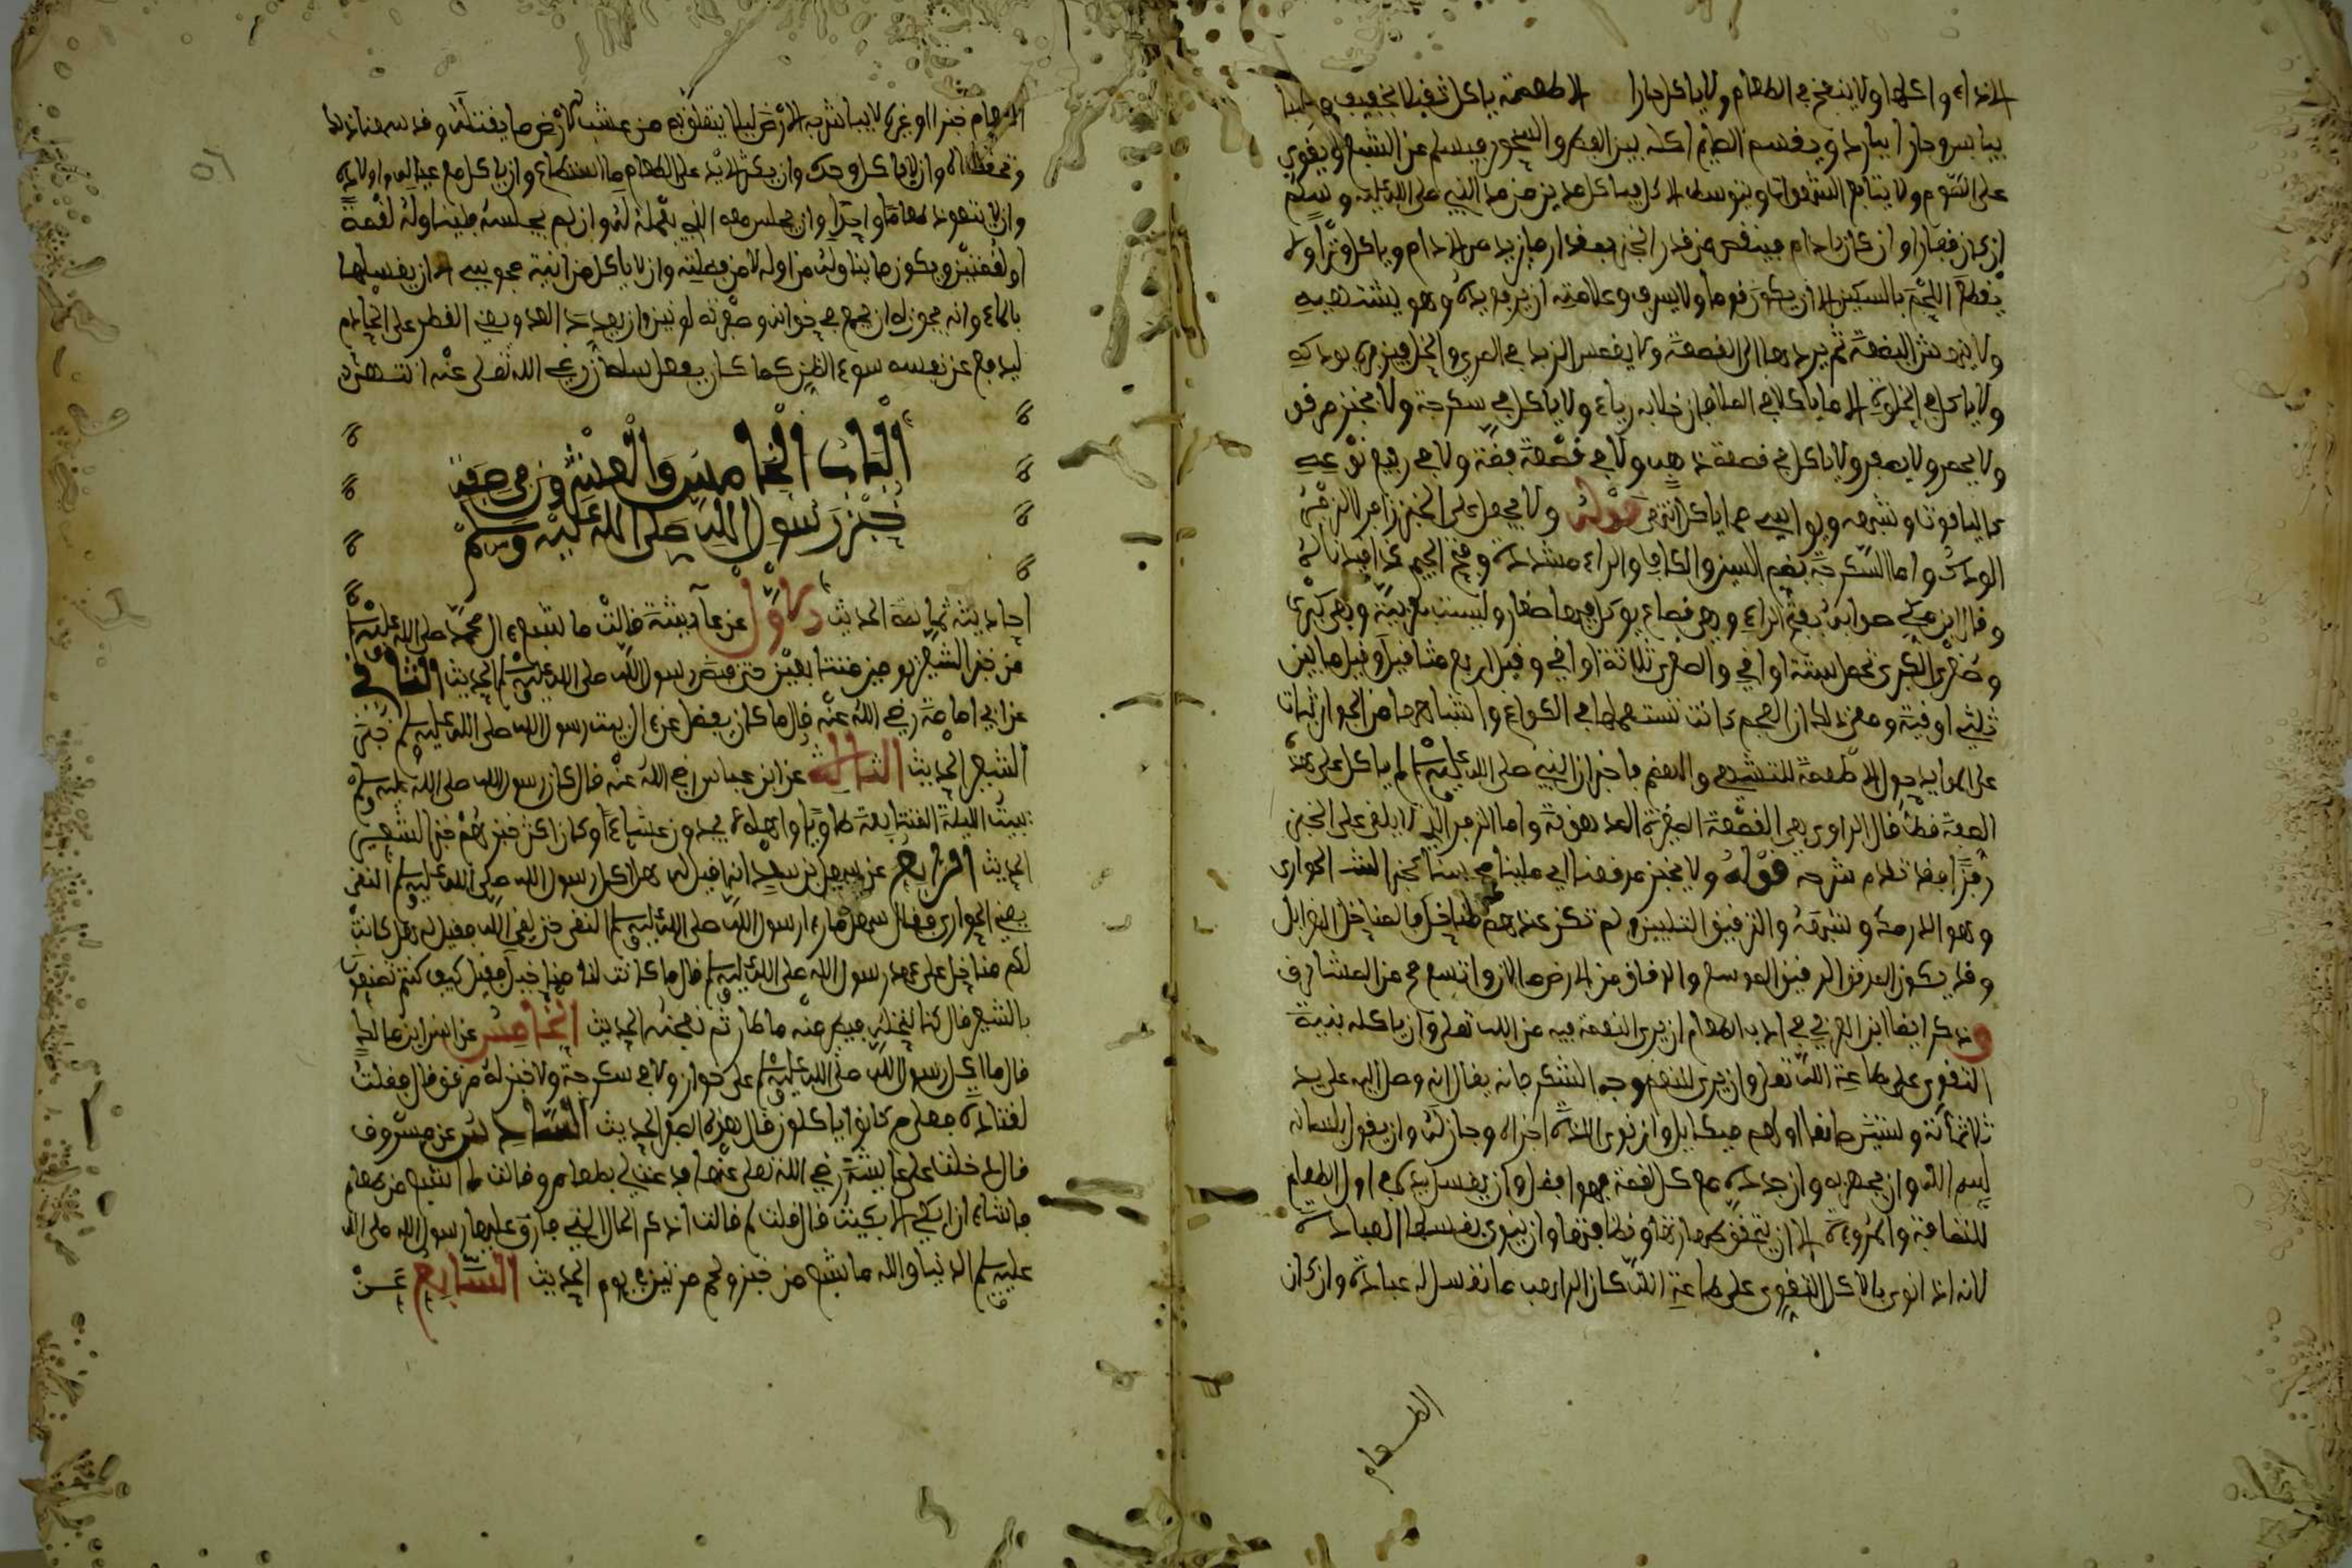 الاناء واكلها ولا ينفخ في الطعام ولا ياكل حارا الاطعمة ياكل ثقيلا بخفيف
بيابس وحارا ببارد ويقسم الصايم اكله بين الفطر والسحور فيسلم عن الشبع ويقوى
على الصوم ولا يتابع الشهوات ويتوسط الاكل فياكل مدين من مد النبي صلى الله عليه وسلم
ان كان قفارا وان كان بادام فينقص من قدر الخبز بمقدار ما يزيد من الادام وياكل وترا ولا
يقطع اللحم بالسكين الا ان يكون قوما ولا يسرف وعلامته ان يرفع يده وهو يشتهيه
ولا ينهش البضعة ثم يردها الى القصعة ولا يغمس الزبد في المري والخل فيزفره بودكه
ولا ياكل في الخلوة الا ما ياكله في الملا فان خلابه رياء ولا ياكل في سكرجة ولا يخبز مرقق
ولا ياكل في قصعة ذهب ولا في قصعة فضة ولا في رفيع نوعه
كالياقوت وشبهه قوله ولا يجعل على الخبز زفرا لا الزفر
الودك واما السكرجة بضم السين والكاف والراء مشددة وفتح الجيم
وقال ابن مكي صوابه بفتح الراء وهي قصاع يوكل فيها صغار وليست بعربية وهي كبرى
وصغرى الكبرى تحمل ستة اواقي والصغرى ثلاثة اواقي وقيل اربع مثاقيل وقيل ما بين
ثلثي اوقية ومعنى ذلك ان العجم كانت تستعملها في الكوامخ واشباهها من الجوارشات
على الموايد حول الاطعمة للتشهي والهضم فاخبر ان النبي صلى الله عليه وسلم لم ياكل على هذه
الصفة قط قال الراوي هي القصعة الصغيرة المدهونة واما الزفر الذي لا يلقى على الخبز
زفرا فقد تقدم شرحه قوله ولا يخبز مرققا اي ملينا محسنا كخبز الحوارى
وهو الدرمك وشبهه والترقيق التليين ولم تكن عندهم مناخل فالمناخل الغرابل
وقد يكون المرقق الرقيق الموسع والرقاق من الارض ما لان واتسع
وذكر ايضا ابن العربي في ادب الطعام ان يرى النعمة فيه من الله تعالى وان ياكله بنية
التقوى على طاعة الله تعالى وان يرى للنعم وجه الشكر فانه يقال انه وصل اليه على يد
ثلاثمائة وستين صانعا اولهم ميكايل وان نوى اللذة اجزاه وجاز له وان يقول بلسانه
بسم الله وان يجهر به وان جدده مع كل لقمة فهو افضل وان يغسل يديه في اول الطعام
للنظافة والمروءة الا ان يتحقق طهارتها ونظافتها وان ينوي بغسلها العبادة
لانه اذا نوى بالاكل التقوى على طاعة الله كان الراهب ما نفسه له عبادة وان كان
الطعام
الطعام خبزا او غيره لا يباشر به الارض ليلا يتعلق به من عشب الارض ما يقتله وقد سمعنا ذلك
وتحفظناه وان لا ياكل وحده وان يكثر الايد على الطعام ما استطاع وان ياكل مع عياله واولاده
وان لا يتعود طعاما واحدا وان يجلس معه الذي يعمله له وان لم يجلسه فليناوله لقمة
او لقمتين ويكون ما يناوله من اوله لا من فضلته وان لا ياكل من انية مجوسي الا ان يغسلها
بالماء وانه يجوز له ان يجمع في خوانه وصفرته لونين وان يعد العدد ويعني القطر على الخادم
ليدفع عن نفسه سوء الظن كما كان يفعل سلمان رضي الله تعالى عنه انتهى
الباب الخامس والعشرون في صفة
خبز رسول الله صلى الله عليه وسلم
احاديثه ثمانية الحديث الاول عن عايشة قالت ما شبع ال محمد صلى الله عليه وسلم
من خبز الشعير يومين متتابعين حتى قبض رسول الله صلى الله عليه وسلم الحديث الثاني
عن ابي امامة رضي الله عنه قال ما كان يفضل عن ال بيت رسول الله صلى الله عليه وسلم خبز
الشعير الحديث الثالث عن ابن عباس رضي الله عنه قال كان رسول الله صلى الله عليه وسلم
يبيت الليلة المتتابعة طاويا واهله لا يجدون عشاء وكان اكثر خبزهم خبز الشعير
الحديث الرابع عن سهل بن سعد انه قيل له هل اكل رسول الله صلى الله عليه وسلم النقي
يعني الحوارى فقال سهل ما رءا رسول الله صلى الله عليه وسلم النقي حتى لقي الله فقيل له هل كانت
لكم مناخل على عهد رسول الله صلى الله عليه وسلم قال ما كانت لنا مناخل فقيل كيف كنتم تصنعون
بالشعير قال كنا ننفخه فيطير منه ما طار ثم نعجنه الحديث الخامس عن انس ابن مالك
قال ما اكل رسول الله صلى الله عليه وسلم على خوان ولا في سكرجة ولا خبز له مرقق قال فقلت
لقتادة فعلى م كانوا ياكلون قال هذه السفر الحديث السادس عن مسروق
قال دخلت على عايشة رضي الله تعالى عنها فدعت لي بطعام وقالت ما اشبع من طعام
فاشاء ان ابكي الا بكيت قال قلت لم قالت اذكر الحال التي فارق عليها رسول الله صلى الله
عليه وسلم الدنيا والله ما شبع من خبز ولحم مرتين في يوم الحديث السابع عن